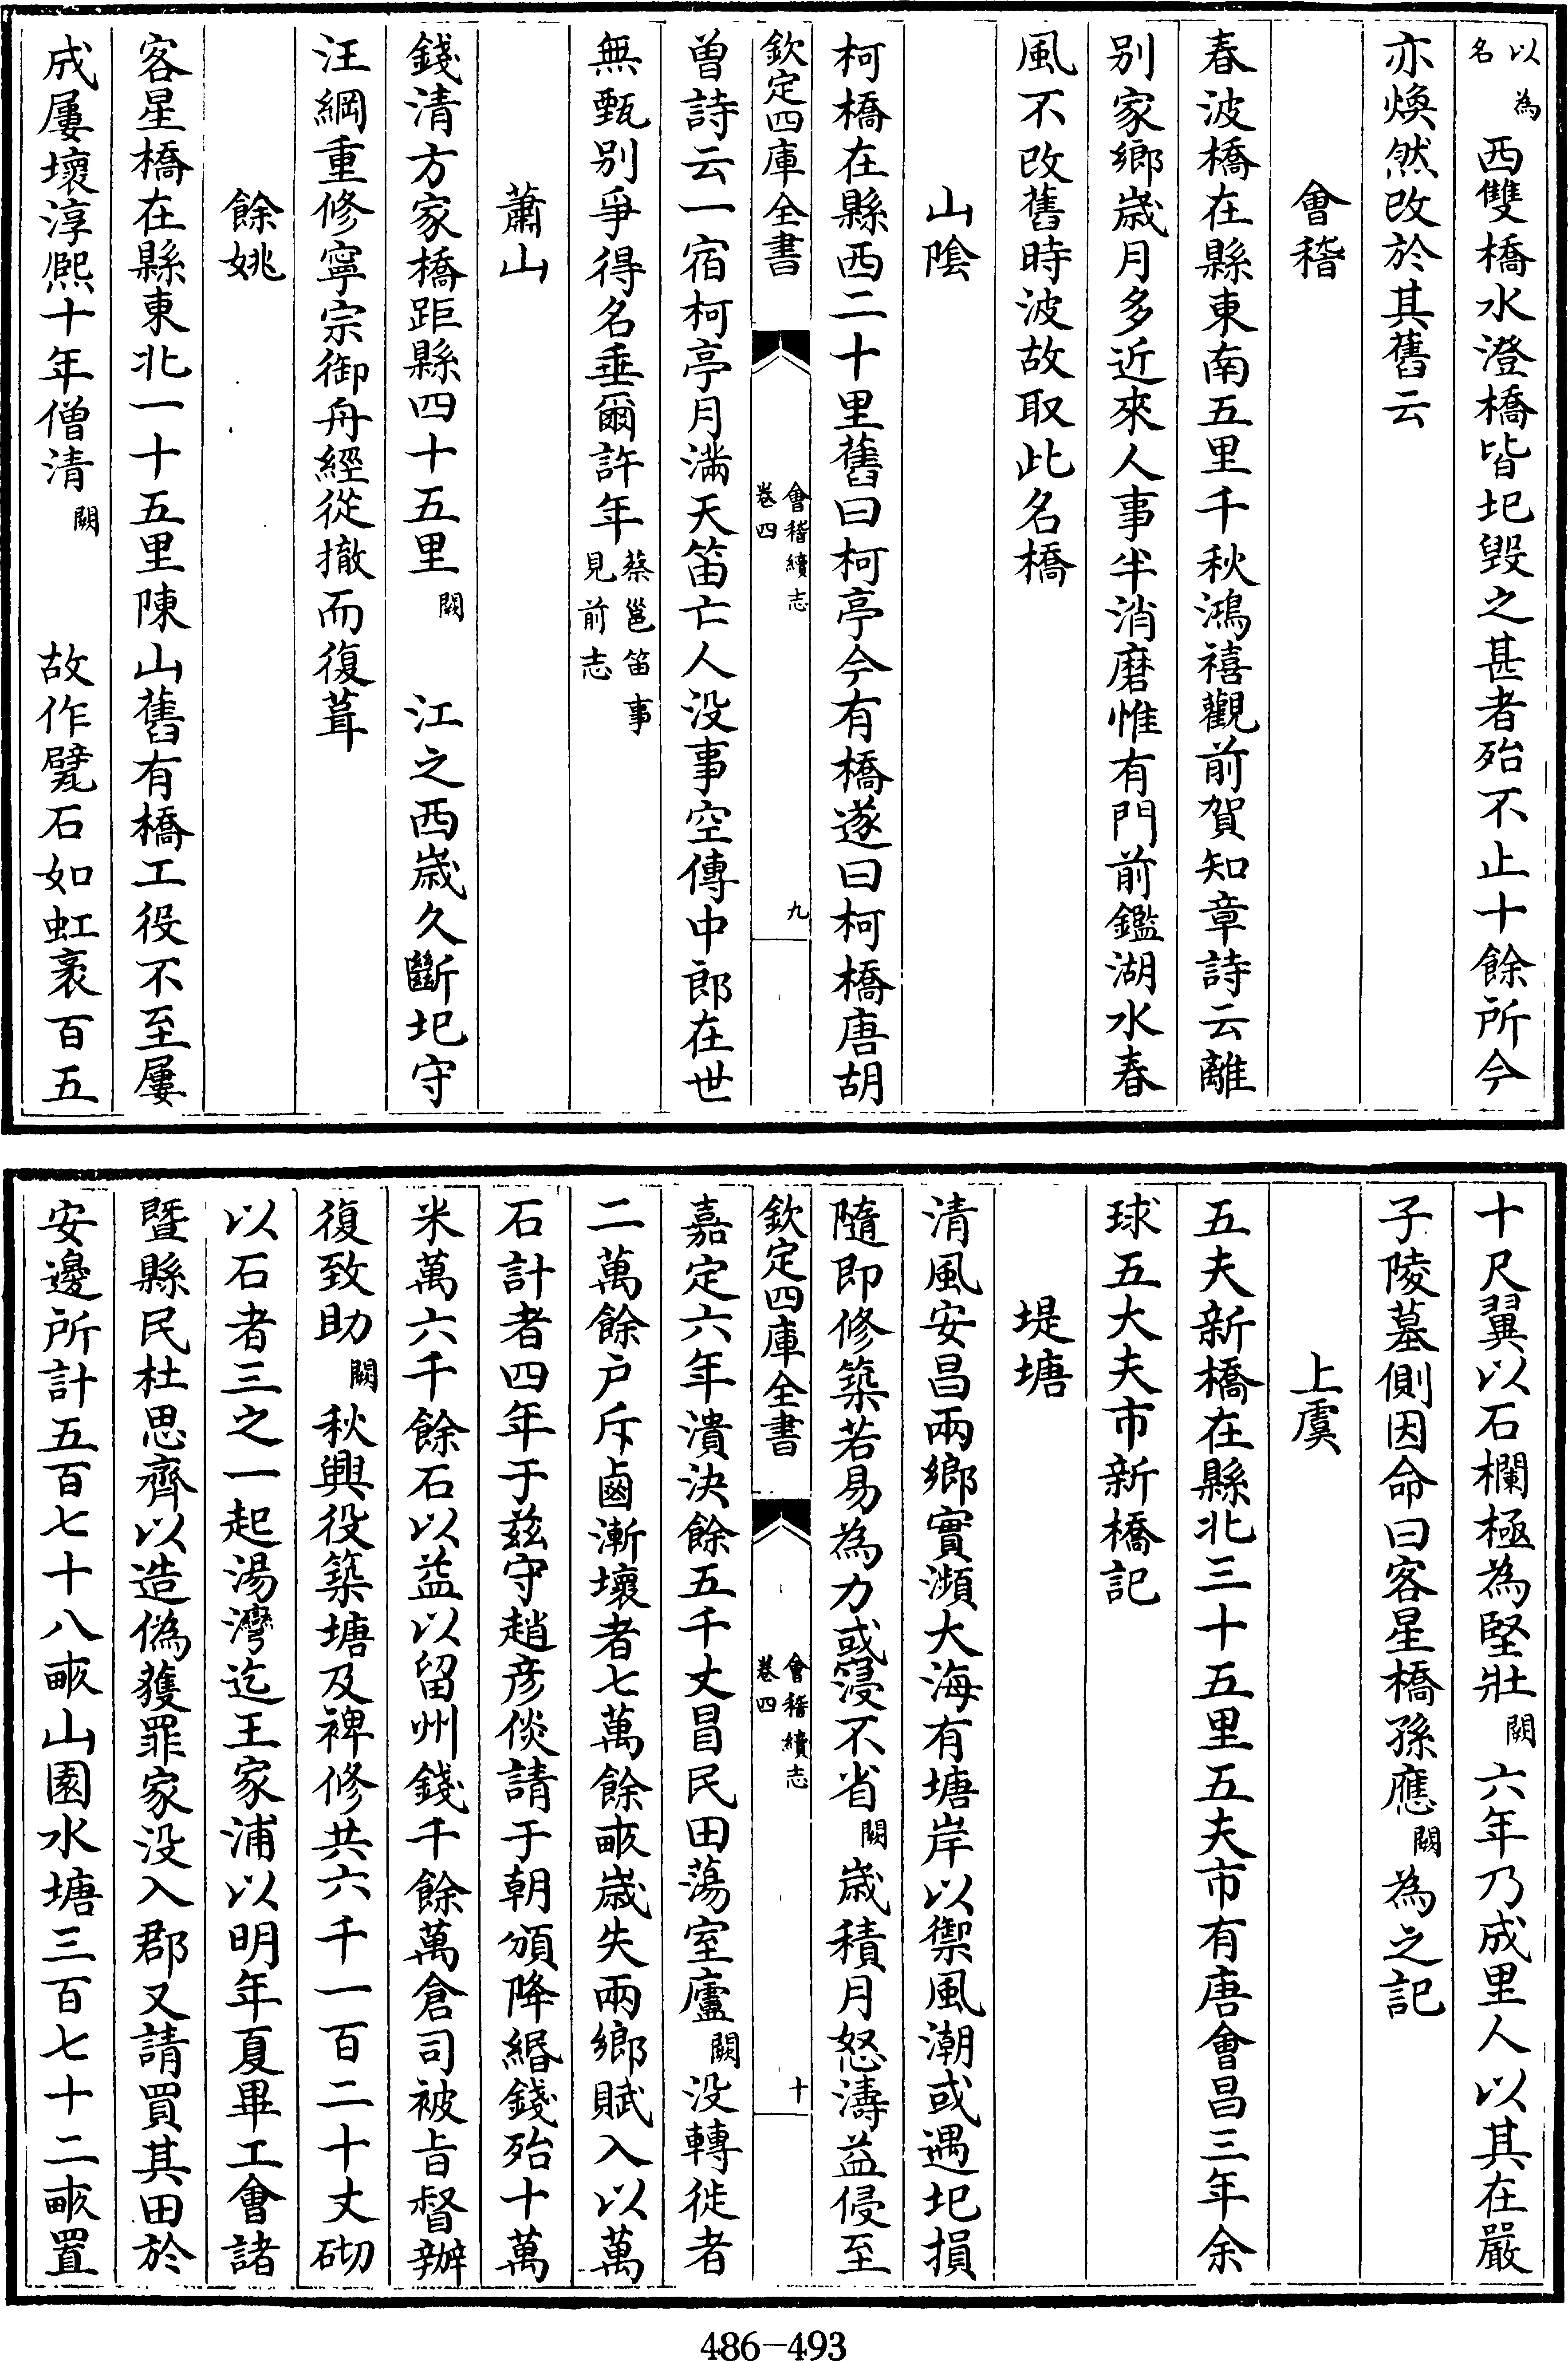 以為名西雙橋水澄橋皆圯毀之甚者殆不止十餘所今
亦煥然改於其舊云
會稽
春波橋在縣東南五里千秋鴻禧觀前賀知章詩云離
别家鄉歲月多近來人事半消磨惟有門前鑑湖水春
風不改舊時波故取此名橋
山陰
柯橋在縣西二十里舊曰柯亭今有橋遂曰柯橋唐胡
欽定四庫全書
會稽續志
卷四
九
曾詩云一宿柯亭月滿天笛亡人没事空傳中郎在世
無甄别爭得名垂爾許年蔡邕笛事見前志
蕭山
錢清方家橋距縣四十五里闕江之西歲久斷圯守
汪綱重修寧宗御舟經從撤而復葺
餘姚
客星橋在縣東北一十五里陳山舊有橋工役不至屢
成屢壞淳熙十年僧清闕故作甓石如虹袤百五
十尺翼以石欄極為堅壯闕六年乃成里人以其在嚴
子陵墓側因命曰客星橋孫應闕為之記
上虞
五夫新橋在縣北三十五里五夫市有唐會昌三年余
球五大夫市新橋記
堤塘
清風安昌兩鄉實瀕大海有塘岸以禦風潮或遇圯損
隨即修築若易為力或寖不省闕歲積月怒濤益侵至
欽定四庫全書
會稽續志
卷四
十
嘉定六年潰決餘五千丈冒民田蕩室廬闕没轉徙者
二萬餘户斥鹵漸壞者七萬餘畝歲失兩鄉賦入以萬
石計者四年于兹守趙彦倓請于朝頒降緡錢殆十萬
米萬六千餘石以益以留州錢千餘萬倉司被旨督辦
復致助闕秋興役築塘及裨修共六千一百二十丈砌
以石者三之一起湯灣迄王家浦以明年夏畢工會諸
暨縣民杜思齊以造偽獲罪家没入郡又請買其田於
安邊所計五百七十八畝山園水塘三百七十二畝置
486-493